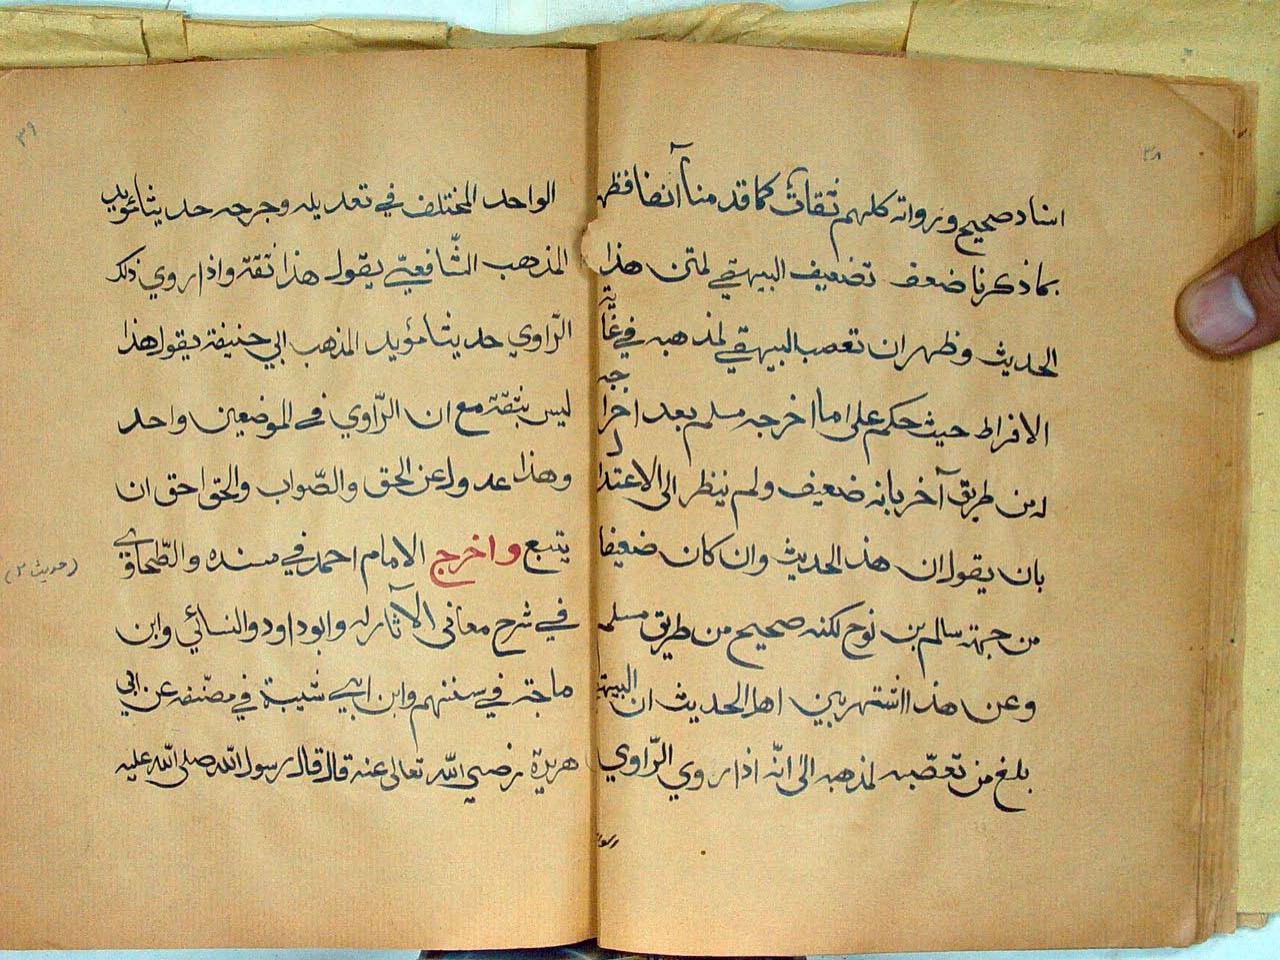 ٣٨
اسناد صحيح ورواته كلهم ثقات كما قدمنا آنفا فظهر
بما ذكرنا ضعف تضعيف البيهقي لمتن هذا
الحديث وظهر ان تعصب البيهقي لمذهبه في غاية
الافراط حيث حكم على ما اخرجه مسلم بعد اخراجه
له من طريق آخر بانه ضعيف ولم ينظر الى الاعتدال
بان يقول ان هذ الحديث وان كان ضعيفا
من جهة سالم بن نوح لكنه صحيح من طريق مسلم
وعن هذا اشتهر بين اهل الحديث ان البيهقي
بلغ من تعصّبه لمذهبه الى انّه اذا روي الرّاوي
٣٩
الواحد المختلف في تعديله وجرحه حديثا مؤيد
المذهب الشّافعيّ يقول هذا ثقة واذا روي ذلك
الرّاوي حديثا مؤيد المذهب ابي حنيفة يقول هذا
ليس بثقة مع ان الرّاوي في الموضعين واحد
وهذا عدول عن الحق والصّواب والحق احق ان
يتبع واخرج الامام احمد في مسنده والطّحاوي
(حديث ٢)
في شرح معاني الآثار له وابوداود والنسائي وابن
ماجة في سننهم وابن ابي شيبة في مصنّفه عن ابي
هريرة رضي الله تعالى عنه قال قال رسول الله صلى الله عليه